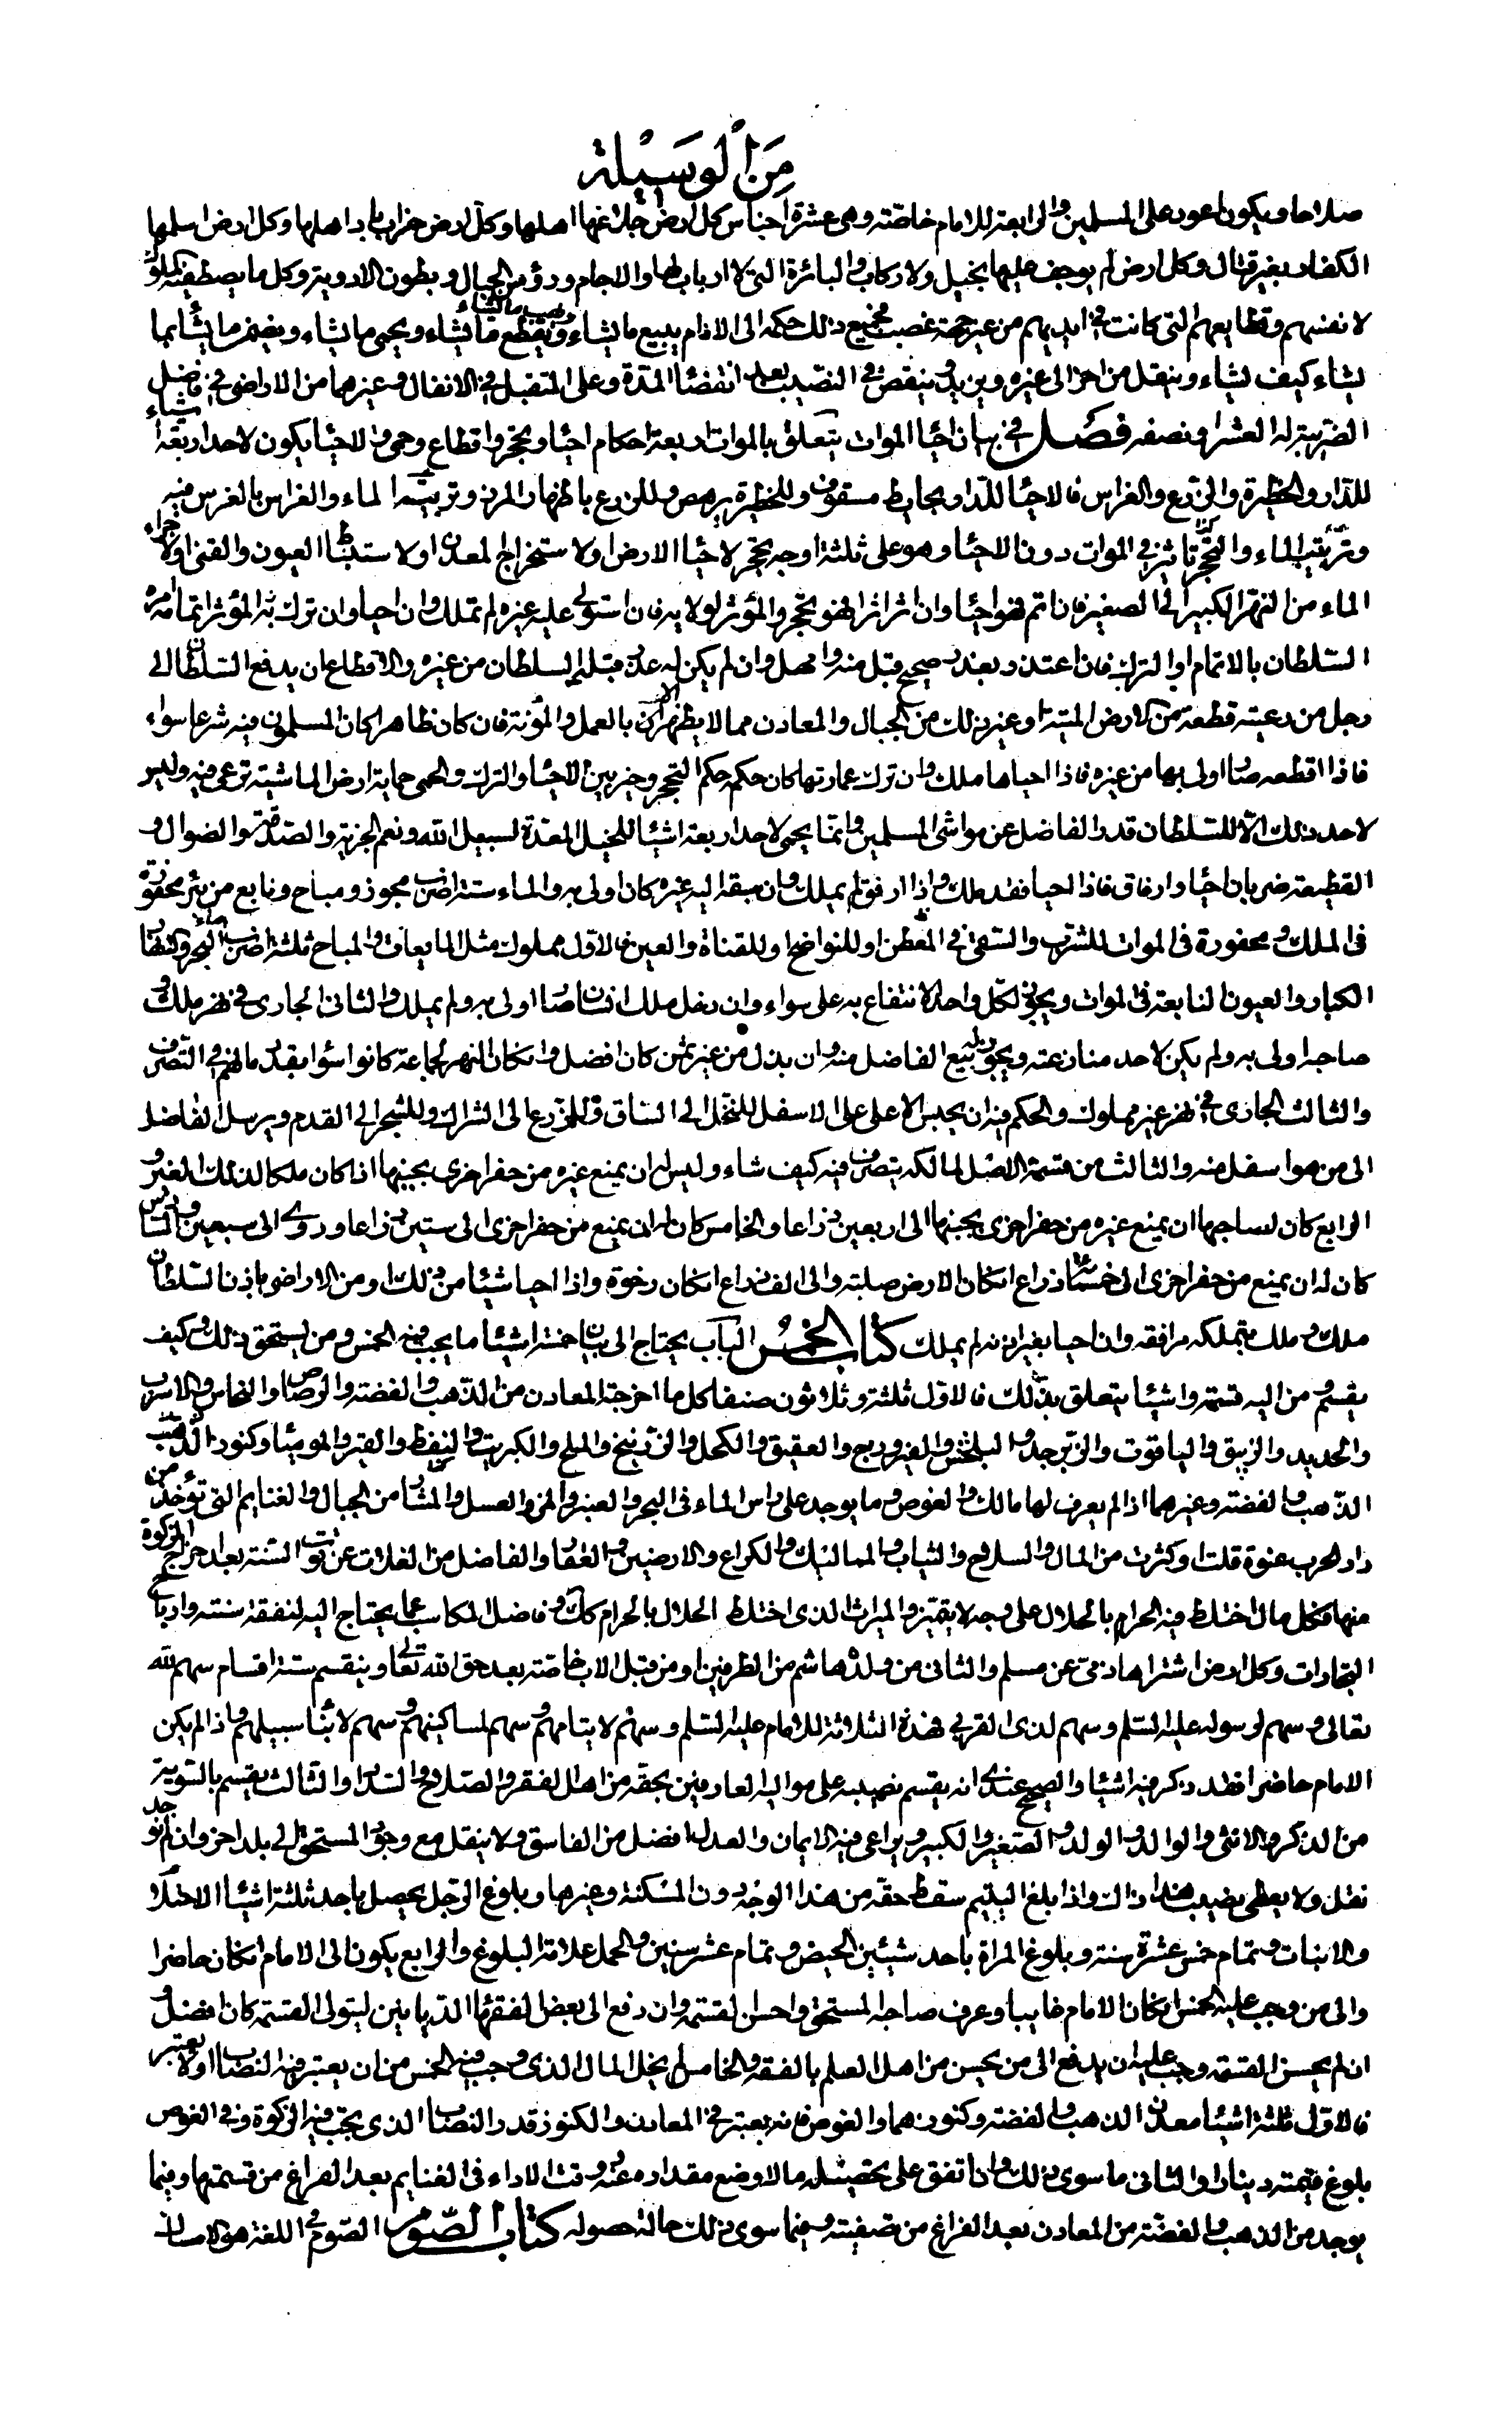 مِنَ الوَسِيْلة
صلاحا ويكون اعود على المسلمين والرابعة للامام خاصّة وهى عشرة اجناس كل ارض جلا عنها اهلها وكل ارض خراب باد اهلها وكل ارض اسلمها
الكفار بغير قتال وكل ارض لم يوجف عليها بخيل ولا ركاب والبائرة التى لا ارباب لها والاجام ورؤس الجبال وبطون الاودية وكل ما يصطفيه الملوك
لانفسهم وقطايعهم التى كانت فى ايديهم من غير جهة غصب فجميع ذلك حكمه الى الامام يبيع ما يشاء ويهب ما يشاء ويقطع ما يشاء ويحمى ما يشاء ويضمن ما يشاء بما
يشاء كيف يشاء وينقل من اخر الى غيره ويزيد وينقص فى النصيب بعد انقضاء المدة وعلى المتقبل فى الانفال وغيرهما من الاراضى فى فاضل
الضريبة له العشر او نصفه فصل فى بيان احيا الموات يتعلق بالموات اربعة احكام احيا وتحجر واقطاع وحمى والاحيا يكون لاحد اربعة اشياء
للدار والحظيرة والزرع والغراس فالاحيا للدار بحايط مسقوف وللحظيرة بربص وللزرع باظهار المرز وترتيب الماء والغراس بالغرس فيه
وترتيب الماء والتحجر تاثير فى الموات دون الاحيا وهو على ثلثة اوجه تحجر لاحيا الارض او لاستخراج المعدن او لاستنباط العيون والقنى او لاجراء
الماء من النهر الكبير الى الصغير فان تم فهو احيا وان اثر اثرا فهو تحجر والمؤثر اولى به فان استولى عليه غيره لم تملك وان احيا وان ترك المؤثر اتمامه امره
السلطان بالاتمام او الترك فان اعتذر بعذر صحيح قبل منه وامهل وان لم يكن له عذر قبله السلطان من غيره والاقطاع ان يدفع السلطان الى
رجل من رعيته قطعة من الارض الميتة او غير ذلك من الجبال والمعادن مما لا يظهر الا بالعمل والمؤنة فان كان ظاهرا كان المسلمون فيه شرعا سواء
فاذا اقطعه صار اولى بها من غيره فاذا احياها ملك وان ترك عمارتها كان حكمه حكم التحجر وخير بين الاحيا والترك والحمى حماية ارض الماشية ترعى فيه وليس
لاحد ذلك الا للسلطان قدر الفاضل عن مواشى المسلمين وانما يحمى لاحد اربعة اشيا للخيل المعدة لسبيل الله ونعم الجزية والصدقة والضوال و
القطيعة ضربان احيا وارفاق فاذا احيا فقد ملك واذا ارفق لم يملك وان سبقه اليه غيره كان اولى به والماء ستة اضرب محوز ومباح ونابع من بئر محفورة
فى الملك ومحفورة فى الموات للشرب والسقى فى المعطن او للنواضح وللقناة والعين فالاول مملوك مثل المايعات والمباح ثلثة اضرب ماء البحر وكنهار
الكبار والعيون النابعة فى الموات ويجوز لكل واحد الانتفاع به على سواء وان دخل ملك انسان صار اولى به ولم يملك والثانى الجارى فى نهر ملك و
صاحبه اولى به ولم يكن لاحد منازعته ويجوز له بيع الفاضل منه وان بذل من غير ثمن كان افضل وان كان النهر لجماعة كانوا سواء بقدر مالهم فى التصرف
والثالث الجارى فى نهر غير مملوك والحكم فيه ان يحبس الاعلى على الاسفل للنخل الى الساق وللزرع الى الشراك وللشجر الى القدم ويرسل الفاضل
الى من هو اسفل منه والثالث من قسمة الاصل لمالكه يتصرف فيه كيف شاء وليس له ان يمنع غيره من حفر اخرى بجنبها اذا كان ملكا لذلك الغير و
الرابع كان لصاحبها ان يمنع غيره من حفر اخرى بجنبها الى اربعين ذراعا والخامس كان له ان يمنع من حفر اخرى الى ستين ذراعا وروى الى سبعين والسادس
كان له ان يمنع من حفر اخرى الى خمسمائة ذراع ان كان الارض صلبة والى الف ذراع ان كان رخوة واذا احيا شيئا من ذلك او من الاراضى باذن السلطان
ملك وملك بتملكه مرافقه وان احيا بغير اذنه لم يملك كتاب الخمس الباب يحتاج الى بيان خمسة اشيا ما يجب فيه الخمس ومن يستحق ذلك وكيف
يقسم ومن اليه قسمته واشيا يتعلق بذلك فالاول ثلثة وثلاثون صنفا كل ما اخرجته المعادن من الذهب والفضة والرصاص والنحاس والاسرب
والحديد والزيبق والياقوت والزبرجد والبلخش والفيروزج والعقيق والكحل والزرنيخ والملح والكبريت والنفط والقير والموميا وكنوز الذهب
الذهب والفضة وغيرهما اذا لم يعرف لها مالك والغوص وما يوجد على راس الماء فى البحر والعنبر والمن والعسل من الجبال والغنايم التى تؤخذ من
دار الحرب عنوة قلت او كثرت من المال والسلاح والثياب والمماليك والكراع والارضين والعقار والفاضل من الغلات عن قوت السنة بعد اخراج الزكوة
منها وكل مال اختلط فيه الحرام بالحلال على وجه لا يتميز والميراث الذى اختلط الحلال بالحرام كذلك وفاضل المكاسب عما يحتاج اليه لنفقة سنته وارباح
التجارات وكل ارض اشتراها ذمى عن مسلم والثانى من ولده هاشم من الطرفين او من قبل الاب خاصة بعد حق الله تعالى وينقسم ستة اقسام سهم لله
تعالى وسهم لرسوله عليه السلم وسهم لذى القربى فهذه الثلاثة للامام عليه السلم وسهم لايتامهم وسهم لمساكينهم وسهم لابنا سبيلهم واذا لم يكن
الامام حاضرا فقد ذكر فيه اشيا والصحيح عندى انه يقسم نصيبه على مواليه العارفين بحقه من اهل الفقر والصلاح والسداد والثالث يقسم بالسوية
من الذكر والانثى والوالد والولد والصغير والكبير ويراعى فيه الايمان والعدل افضل من الفاسق ولا ينقل مع وجود المستحق الى بلد اخر وان لم يوجد
نقل ولا يعطى نصيب هذا ذاك واذا بلغ اليتيم سقط حقه من هذا الوجه دون المسكنة وغيرها وبلوغ الرجل يحصل باحد ثلثة اشيا الاحتلام
والانبات وتمام خمس عشرة سنة وبلوغ المراة باحد شيئين الحيض وتمام عشر سنين والحمل علامة البلوغ والرابع يكون الى الامام ان كان حاضرا
والى من وجب عليه الخمس ان كان الامام غايبا وعرف صاحبه المستحق واحسن القسمة وان دفع الى بعض الفقهاء الديانين ليتولى القسمة كان افضل و
ان لم يحسن القسمة وجب عليه ان يدفع الى من يحسن من اهل العلم بالفقه والخامس لم يخل المال الذى وجب فيه الخمس من ان يعتبر فيه النصاب او لا يعتبر
فالاول ثلثة اشيا معدن الذهب والفضة وكنوزهما والغوص فانه يعتبر فى المعادن والكنوز قدر النصاب الذى يجب فيه الزكوة وفى الغوص
بلوغ قيمته دينارا والثانى ما سوى ذلك واذا تفق على تحصيله مالا وضع مقداره عنه وقت الاداء فى الغنايم بعد الفراغ من قسمتها وفيما
يوجد من الذهب والفضة من المعادن بعد الفراغ من تصفيته وفيما سوى ذلك حالة حصوله كتاب الصوم الصوم فى اللغة هو الامساك